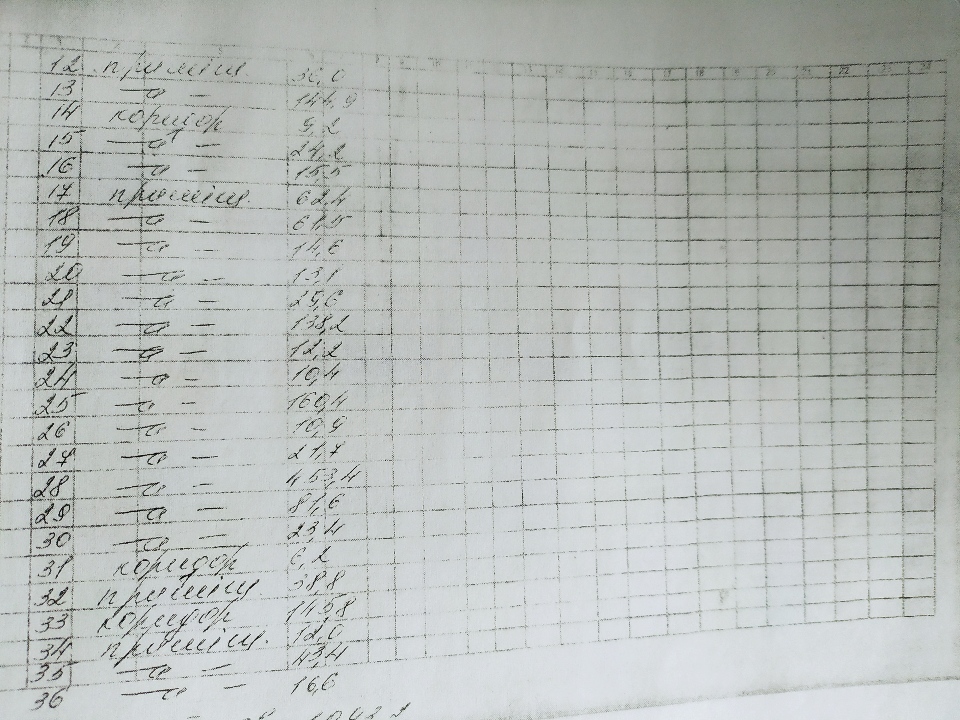 12 приміщ. 30,0
13 —"— 144,9
14 коридор 9,2
15 —"— 24,2
16 —"— 15,5
17 приміщ. 62,4
18 —"— 61,5
19 —"— 14,6
20 —"— 13,1
21 —"— 29,6
22 —"— 138,2
23 —"— 12,2
24 —"— 10,4
25 —"— 160,4
26 —"— 10,9
27 —"— 21,7
28 —"— 453,4
29 —"— 81,6
30 —"— 23,4
31 коридор 6,2
32 приміщ 38,8
33 коридор 145,8
34 приміщ. 12,0
35 —"— 43,4
36 —"— 16,6